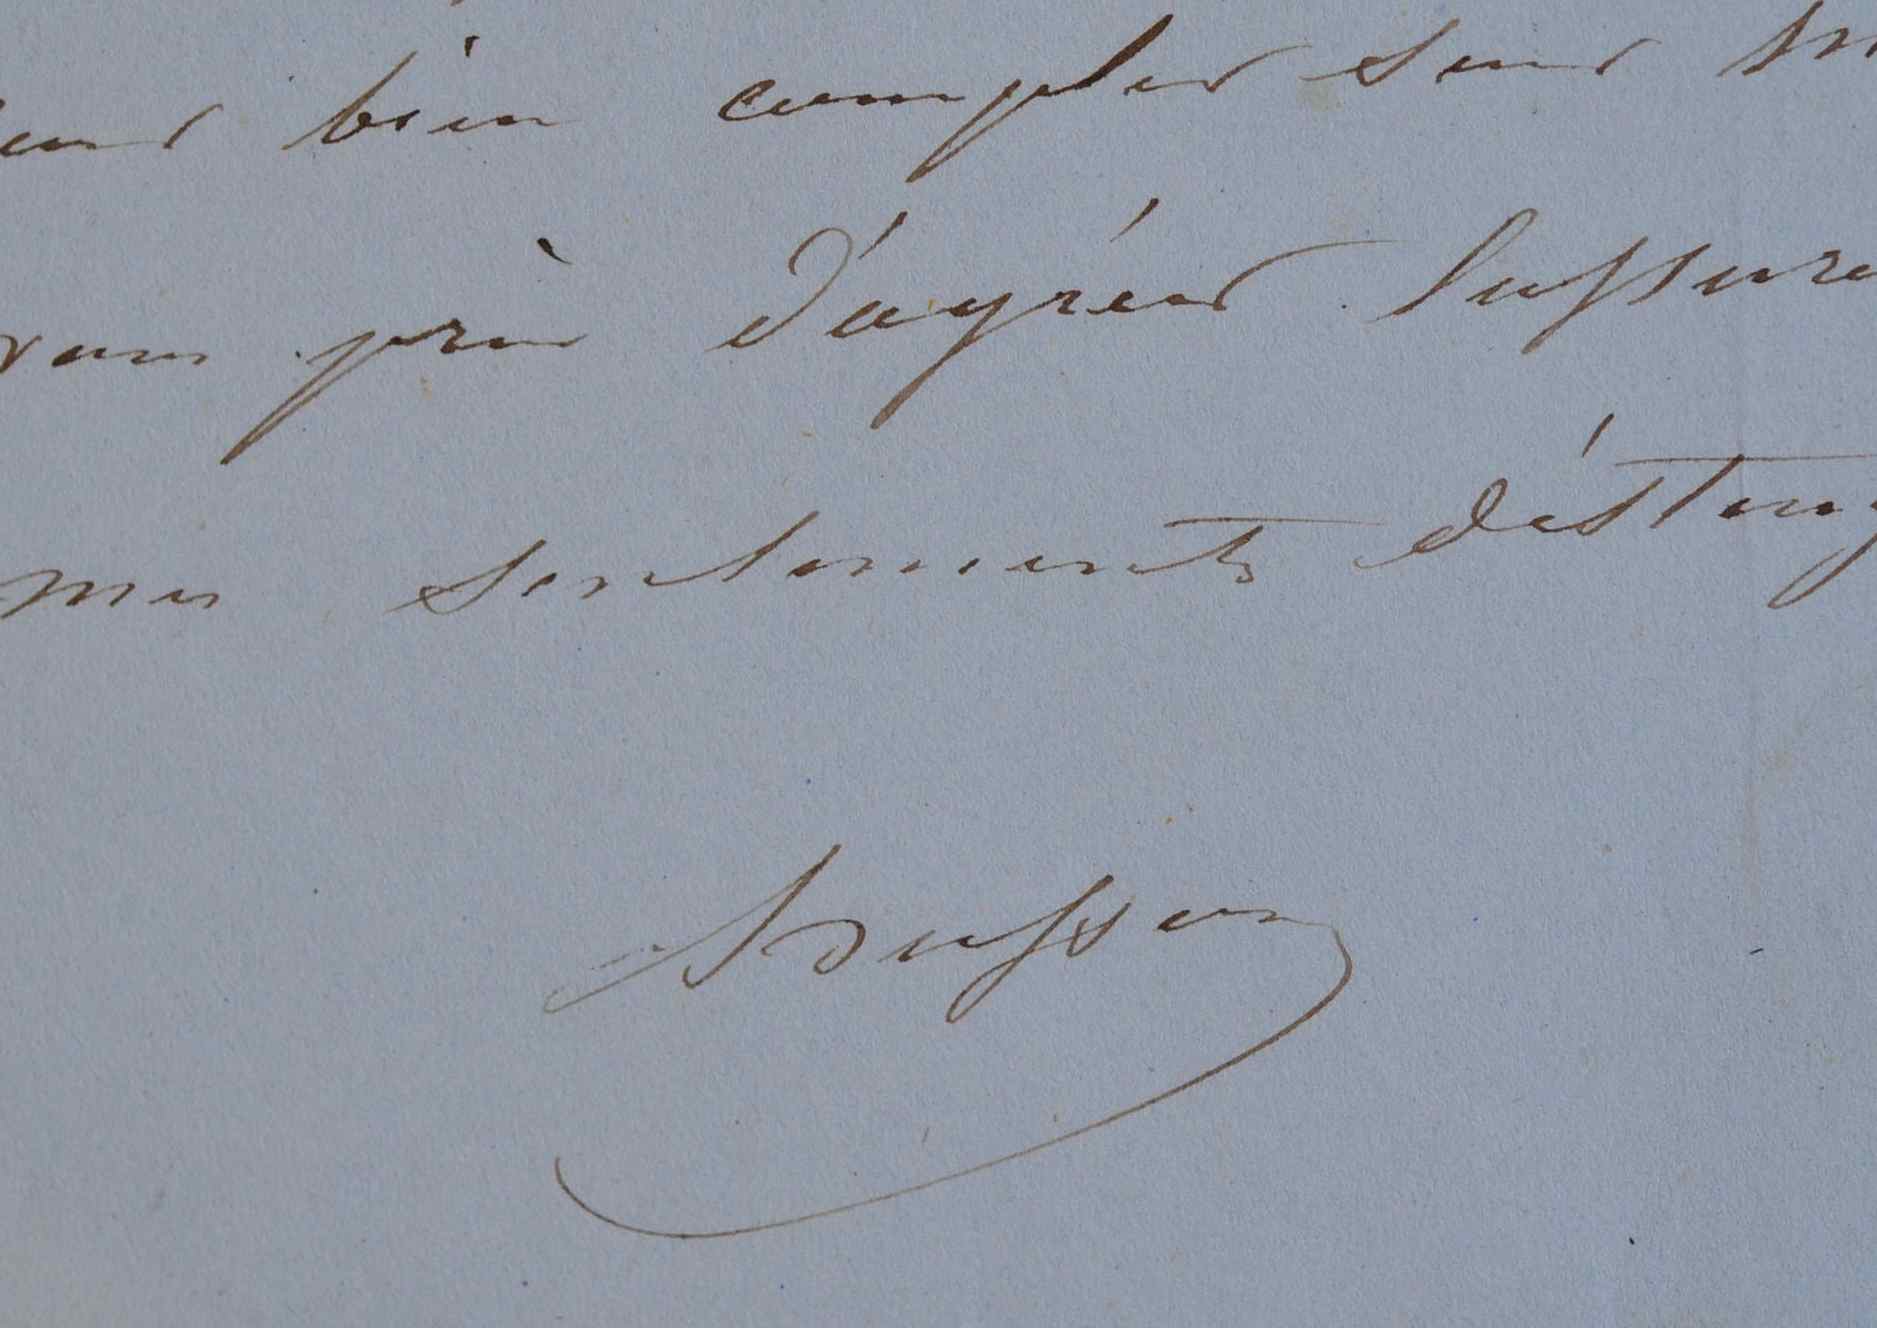 bien compter sur m
vous prie d'agréer l'assura
mes sentiments disting